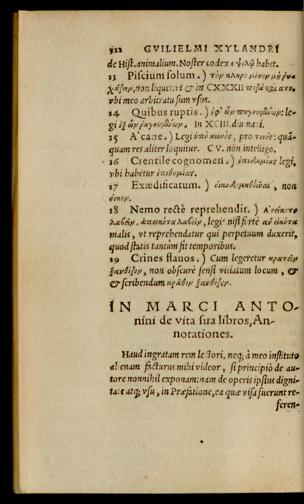 322 GVILIELMI XYLANDRI
de Hist. animalium. Noster codex ε ψιλῷ habet.
13 Piscium solum.)
non liquet: vt & in CXXXII
vbi meo arbitratu sum vsus.
14 Quibus ruptis.) ἐφ' ὧν
gi ἐξ ὧν In XCIII
15 A' cane.) Legi ὑπὸ κυνὸς, pro τινὸς: quā-
quam res aliter loquitur. C V. non intelligo.
16 Crentile cognomeri.) ἐπιθυμίας legi,
vbi habetur ἐπιθυμίας.
17 Exædificatum.) non
18 Nemo rectè reprehendit.)
legi: nisi fortè
malis, vt reprehendatur qui perpetuum duxerit,
quod statis tantùm sit temporibus.
19 Crines flauos.) Cum legeretur
ξανθίζειν, non obscurè sensi vitiatum locum, &
& scribendum ξανθίζειν.
IN MARCI ANTO-
nini de vita sua libros, An-
notationes.
Haud ingratam rem lectori, neq; à meo instituto
alienam facturus mihi videor, si principiò de au-
tore nonnihil exponam: nam de operis ipsius digni-
tate atq; vsu, in Præfatione, ea quæ visa fuerunt re-
feren-